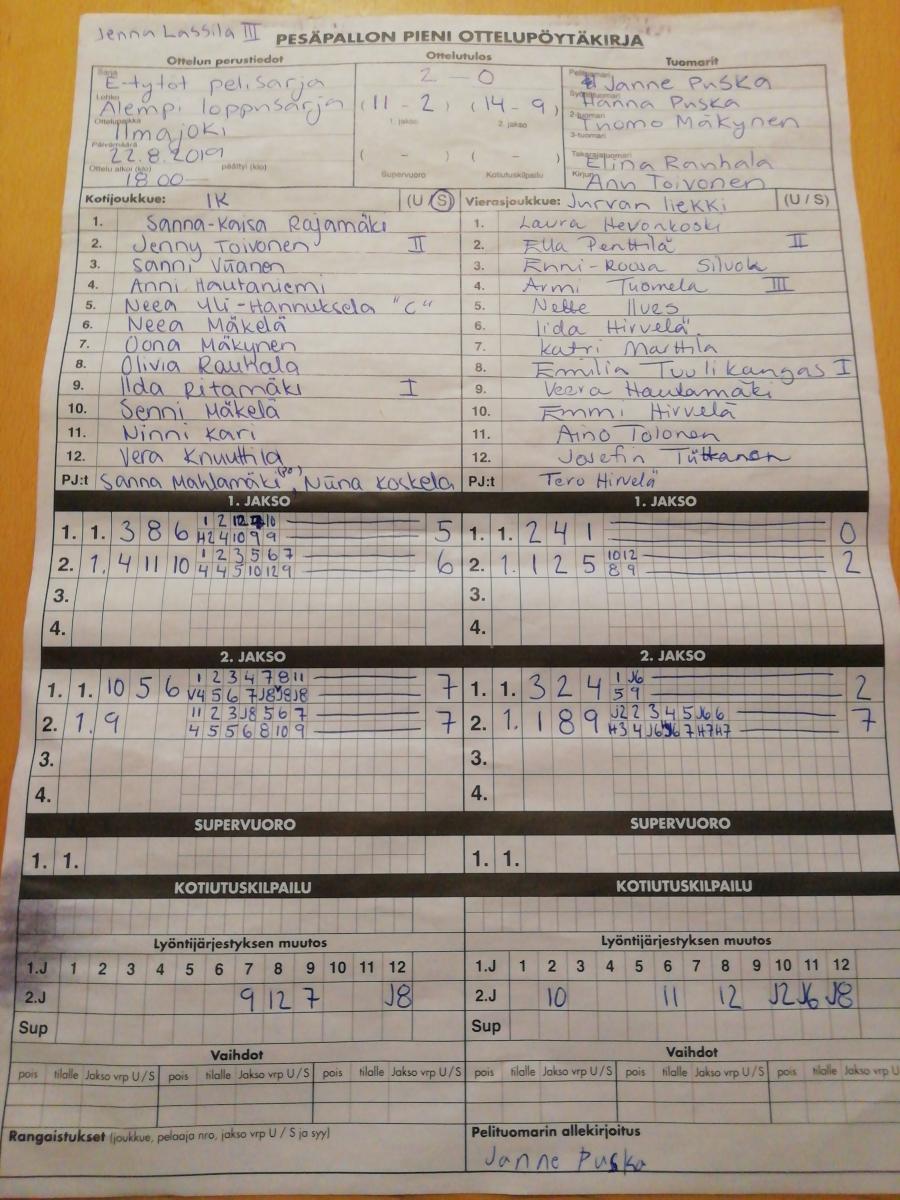 Jenna Lassila III
PESÄPALLON PIENI OTTELUPÖYTÄKIRJA
Ottelun perustiedot Ottelutulos Tuomarit
Sarja E-tytöt pelisarja 2 - 0 Pelituomari Janne Puska
Lohko Alempi loppusarja (11 - 2) (14 - 9) Syöttötuomari Hanna Puska
Ottelupaikka Ilmajoki 1. jakso 2. jakso 2-tuomari Tuomo Mäkynen
3-tuomari
Päivämäärä 22.8.2019 ( - ) ( - ) Takarajatuomari Elina Rauhala
Ottelu alkoi (klo) 18.00 päättyi (klo) — Supervuoro Kotiutuskilpailu Kirjuri Anu Toivonen
Kotijoukkue: IK (U/S) Vierasjoukkue: Jurvan liekki (U / S)
1. Sanna-Kaisa Rajamäki 1. Laura Hevonkoski
2. Jenny Toivonen II 2. Ella Penttilä II
3. Sanni Viianen 3. Enni-Roosa Silvola
4. Anni Hautaniemi 4. Armi Tuomela III
5. Neea Yli-Hannuksela "C" 5. Nette Ilves
6. Neea Mäkelä 6. Iida Hirvelä
7. Oona Mäkynen 7. Katri Marttila
8. Olivia Rauhala 8. Emilia Tuulikangas I
9. Ilda Ritamäki I 9. Veera Hautamäki
10. Senni Mäkelä 10. Emmi Hirvelä
11. Ninni Kari 11. Aino Tolonen
12. Vera Knuuttila 12. Josefin
PJ:t Sanna Mahlamäki (PJ), Niina Koskela PJ:t Tero Hirvelä
1. JAKSO 1. JAKSO
1. 1. 3 8 6 1 2 12 10 5 1. 1. 2 4 1 0
H2 4 10 9 9
2. 1. 4 11 10 1 2 3 5 6 7 6 2. 1. 1 2 5 10 12 2
4 4 5 10 12 9 8 9
3. 3.
4. 4.
2. JAKSO 2. JAKSO
1. 1. 10 5 6 1 2 3 4 7 8 11 7 1. 1. 3 2 4 1 J6 2
V4 5 6 7 J8 J8 J8 5 9
2. 1. 9 11 2 3 J8 5 6 7 7 2. 1. 1 8 9 J2 2 3 4 5 J6 6 7
4 5 5 6 8 10 9 H3 4 J6 J6 7 H7 H7
3. 3.
4. 4.
SUPERVUORO SUPERVUORO
1. 1. 1. 1.
KOTIUTUSKILPAILU KOTIUTUSKILPAILU
Lyöntijärjestyksen muutos Lyöntijärjestyksen muutos
1.J 1 2 3 4 5 6 7 8 9 10 11 12 1.J 1 2 3 4 5 6 7 8 9 10 11 12
2.J 9 12 7 J8 2.J 10 11 12 J2 J6 J8
Sup Sup
Vaihdot Vaihdot
pois tilalle Jakso vrp U/S pois tilalle Jakso vrp U/S pois tilalle Jakso vrp U/S pois tilalle Jakso vrp U/S pois tilalle Jakso vrp U/S pois tilalle Jakso vrp U
Rangaistukset (joukkue, pelaaja nro, jakso vrp U / S ja syy) Pelituomarin allekirjoitus
Janne Puska